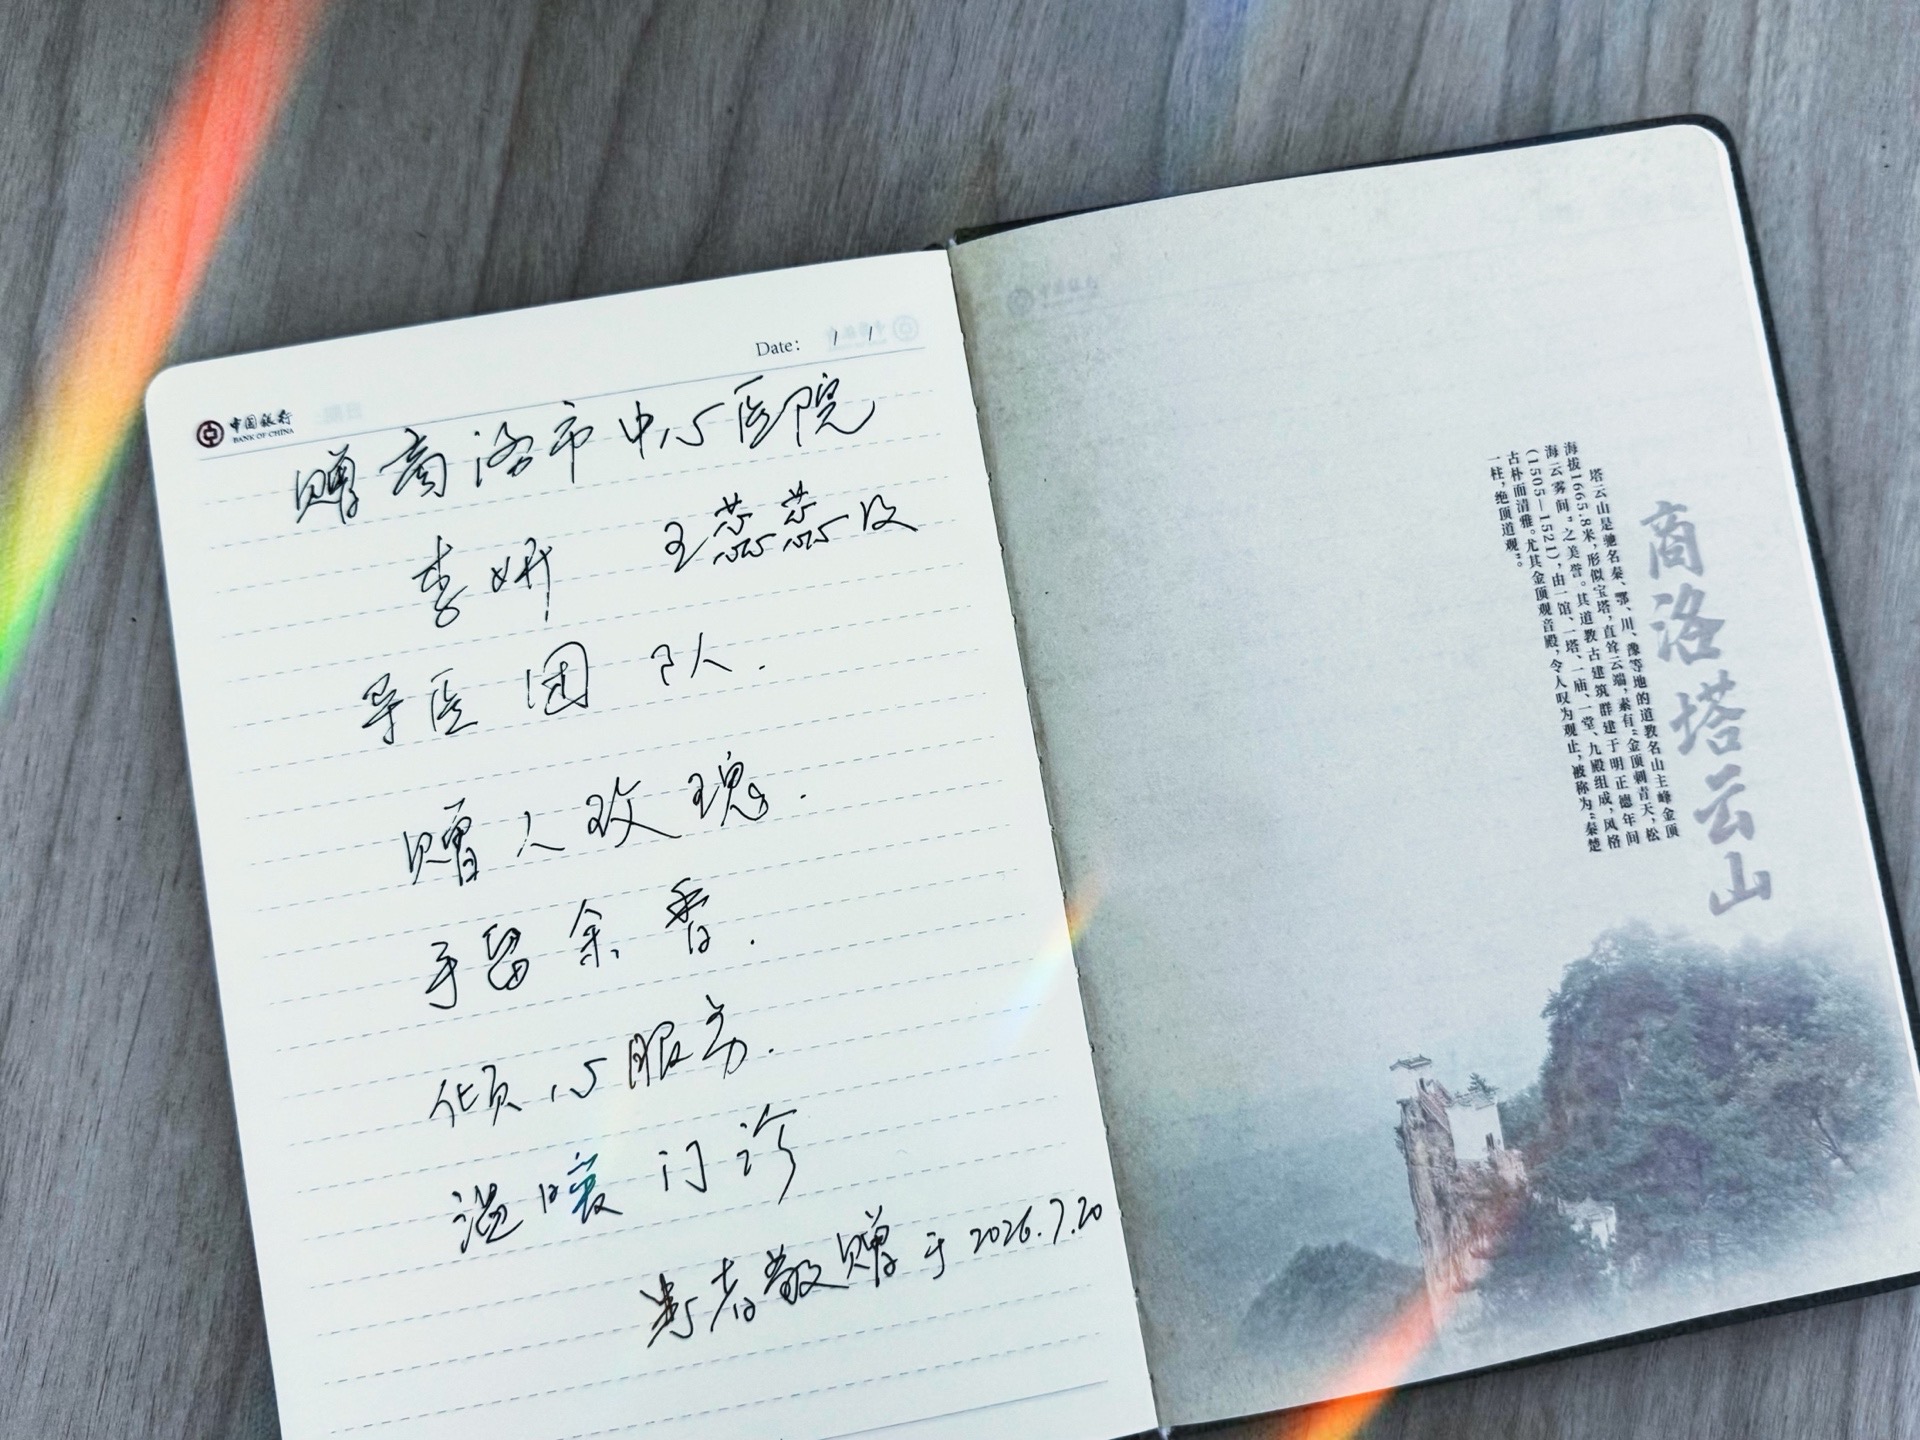 Date:
中国银行
BANK OF CHINA
赠商洛市中心医院
李妍 王蕊蕊及
导医团队.
赠人玫瑰.
手留余香.
倾心服务.
温暖门诊
患者敬赠于2026.7.20
商洛塔云山
塔云山是驰名秦、鄂、川、豫等地的道教名山主峰金顶
海拔1665.8米,形似宝塔,直耸云端,素有“金顶刺青天,松
海云雾间”之美誉。其道教古建筑群建于明正德年间
(1505—1521),由一馆、一塔、一庙、一堂、九殿组成,风格
古朴而清雅。尤其金顶观音殿,令人叹为观止,被称为“秦楚
一柱,绝顶道观”。